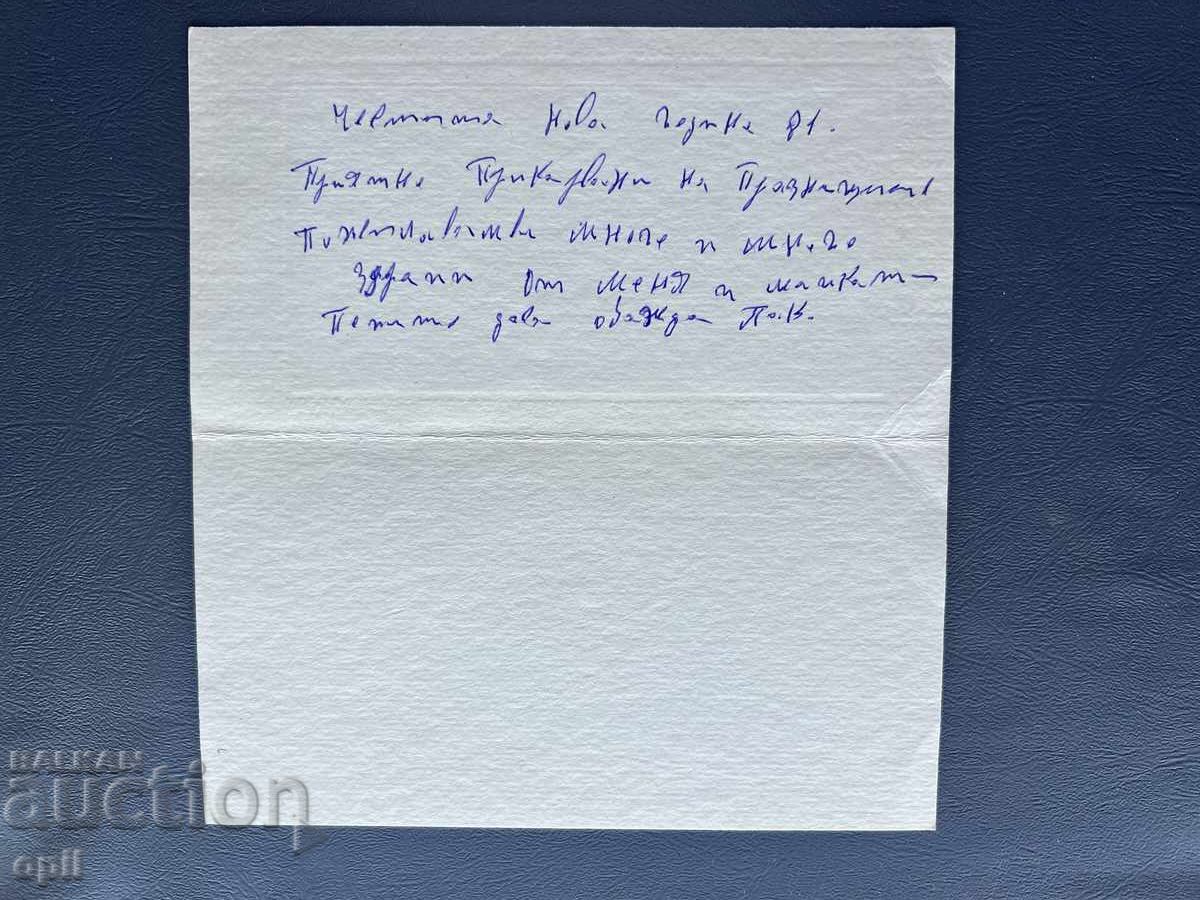 Честита Нова Година 81.
Приятно Прикарвани на Празниците
Пожелаваме Многе и Много
Здрави От Меня и майкати
Петит да обажда П.К.
BALKAN
auction
opll